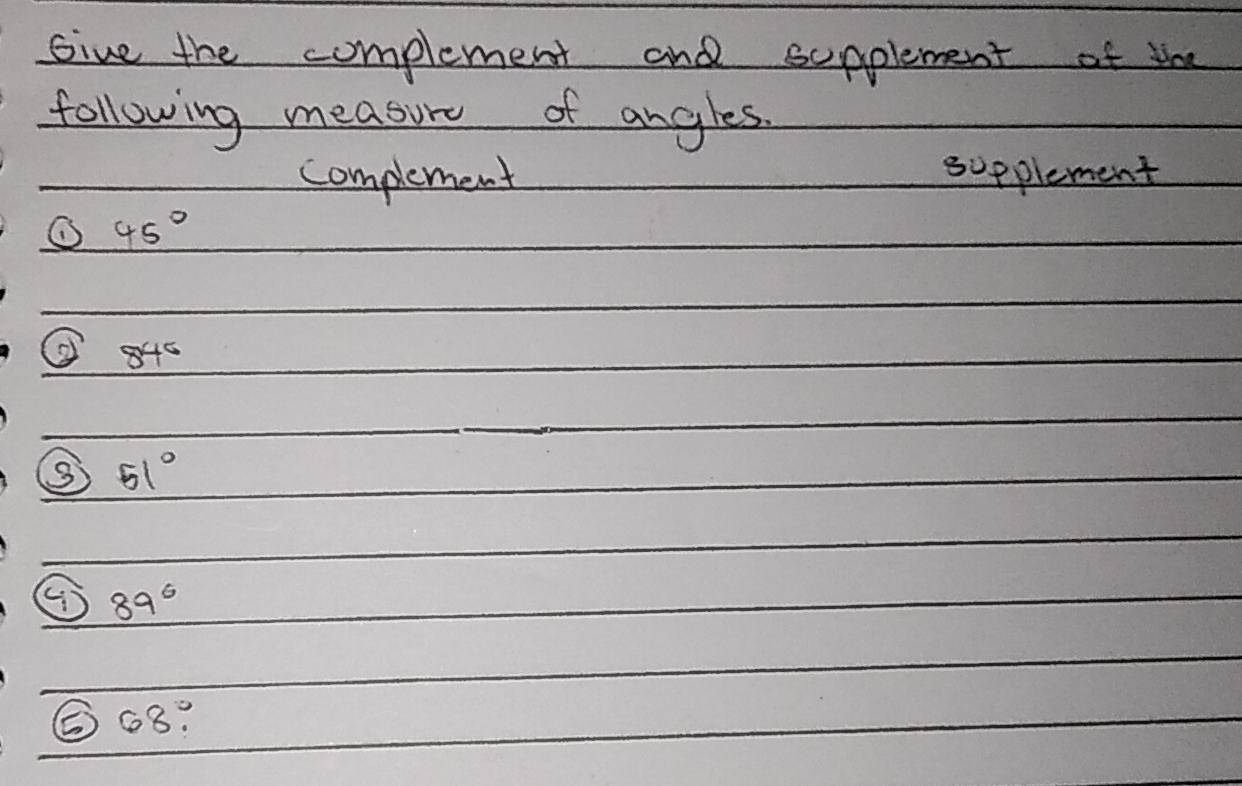 Give the complement and supplement of the
following measure of angles.
complement supplement
① 45°
② 84°
③ 51°
④ 89°
⑤ 68°